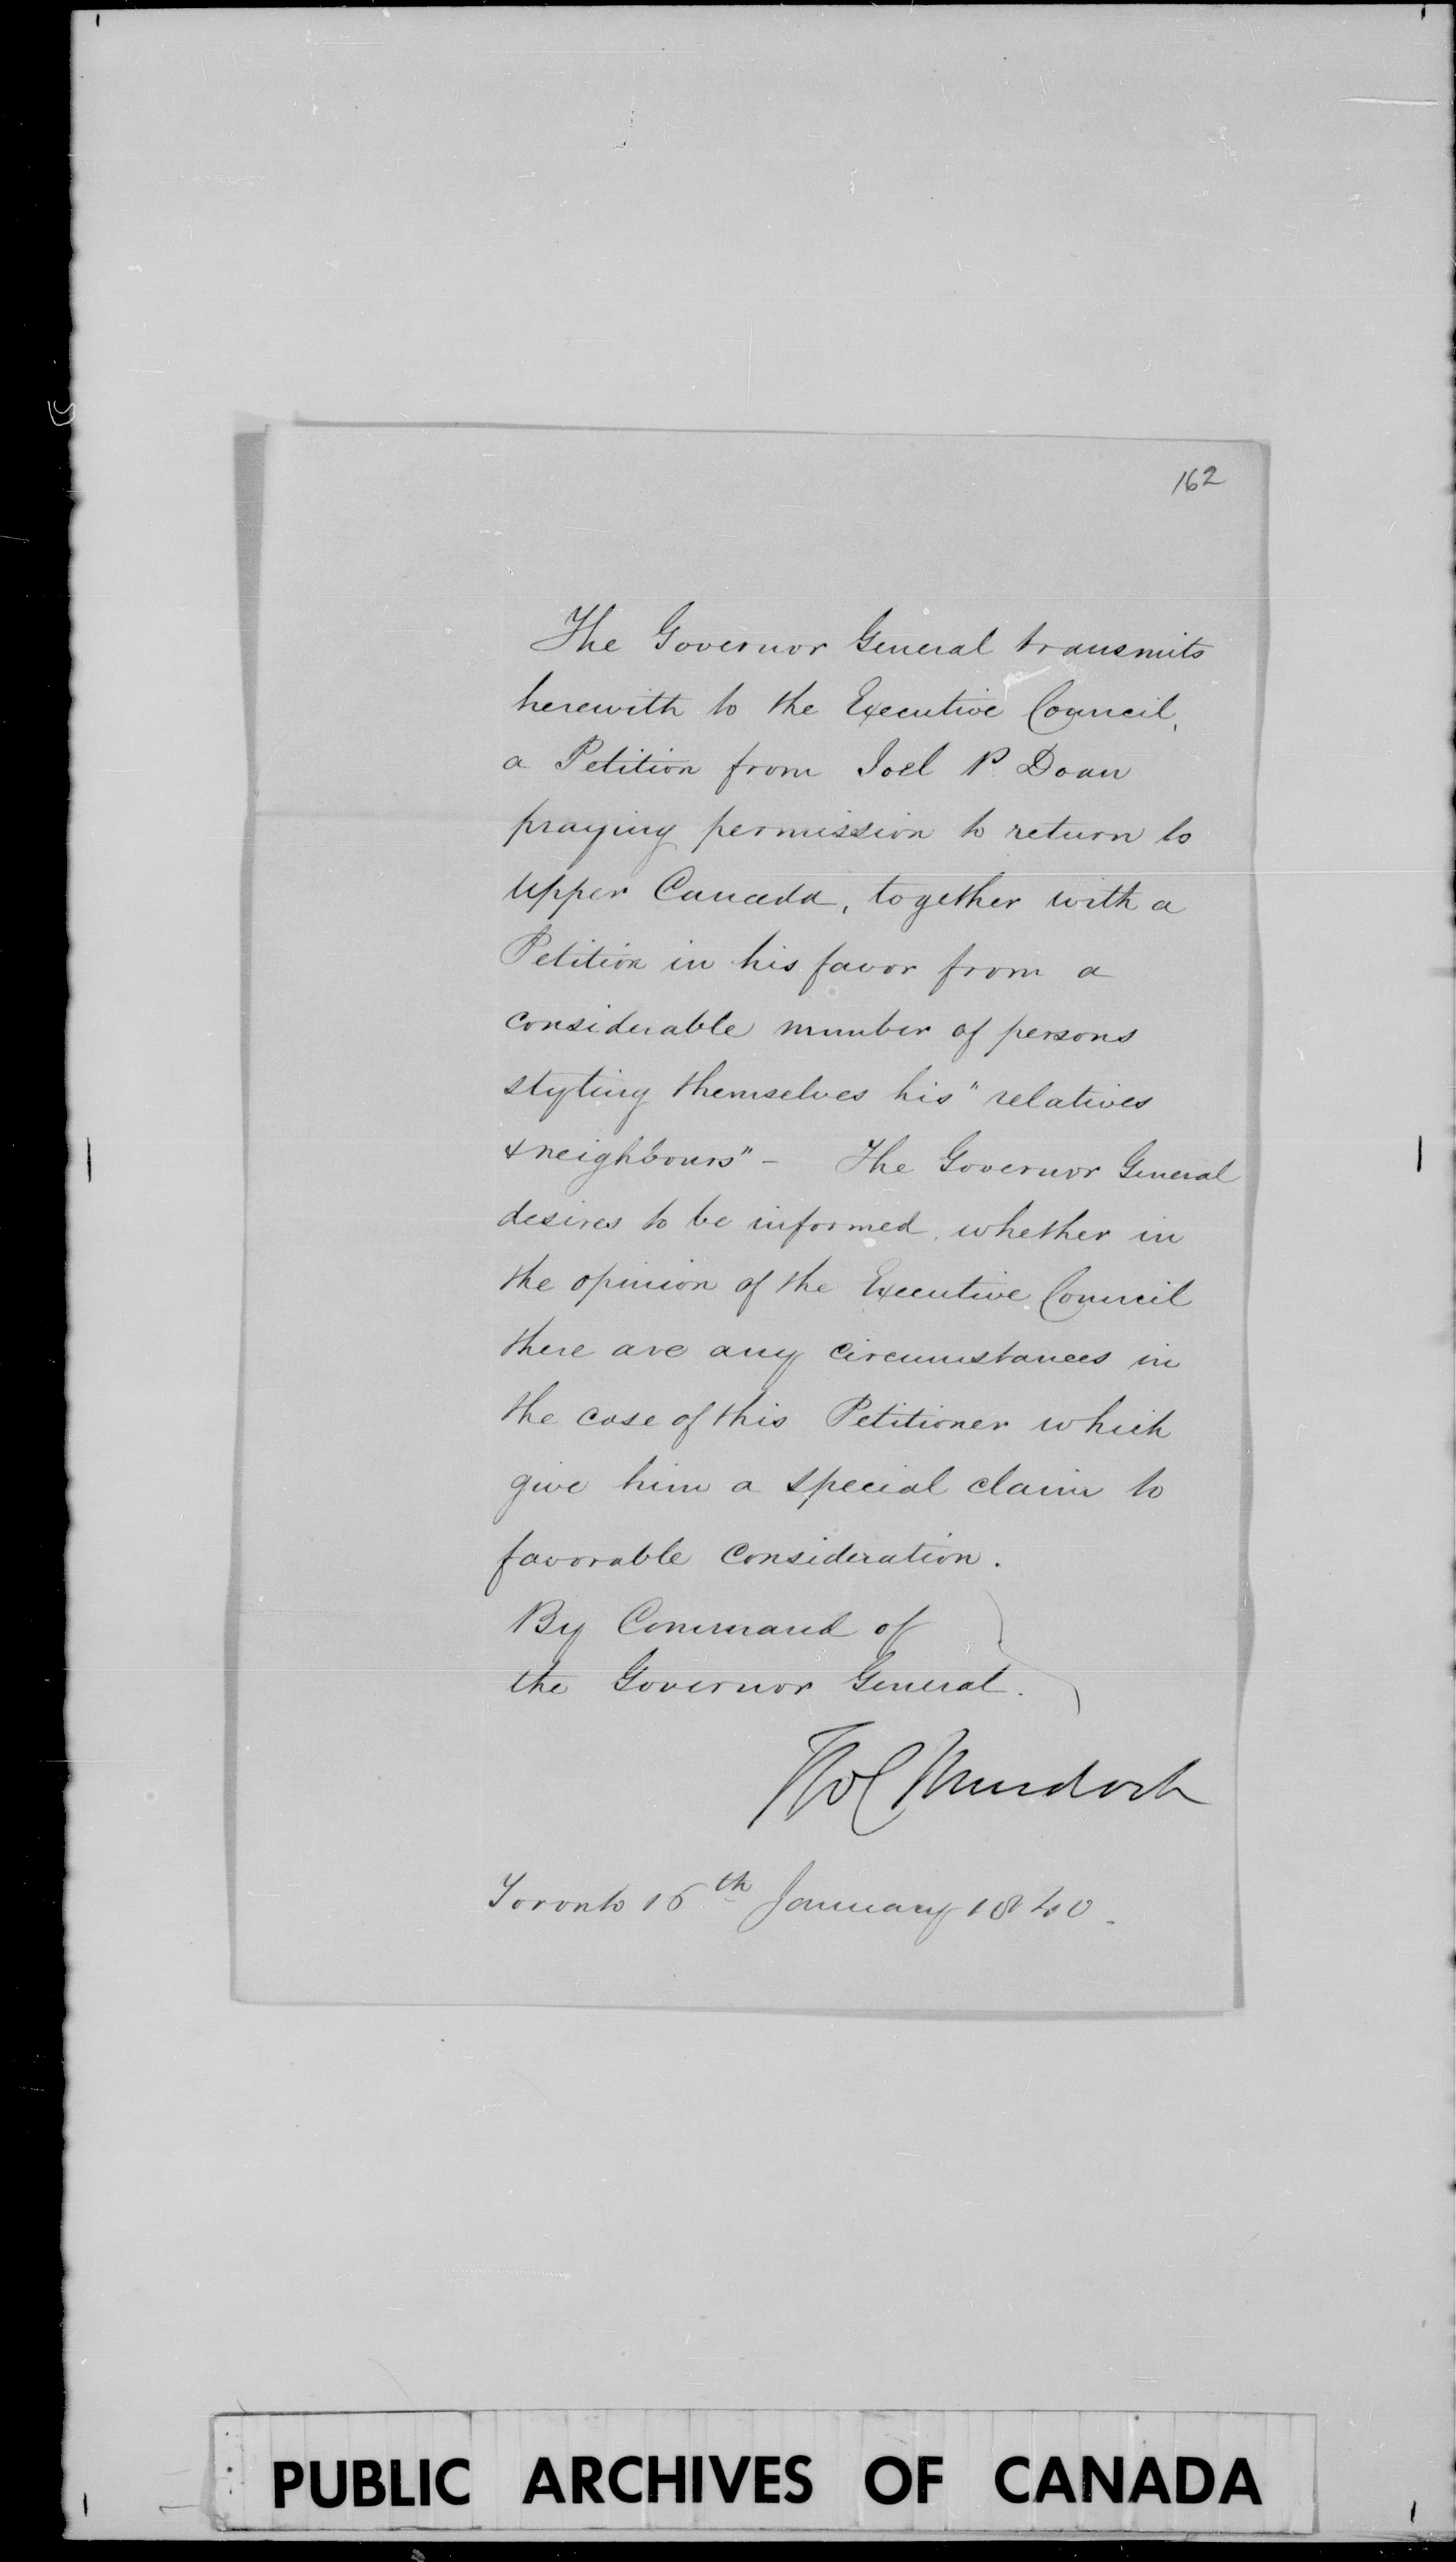 162
The Governor General transmits
herewith to the Executive Council,
a Petition from Joel P. Doan
praying permission to return to
Upper Canada, together with a
Petition in his favor from a
considerable number of persons
styling themselves his "relatives
& neighbours" - The Governor General
desires to be informed, whether in
the opinion of the Executive Council
there are any circumstances in
the case of this Petitioner which
give him a special claim to
favorable consideration.
By Command of
the Governor General.
Murdoch
Toronto 16th January 1840.
PUBLIC ARCHIVES OF CANADA